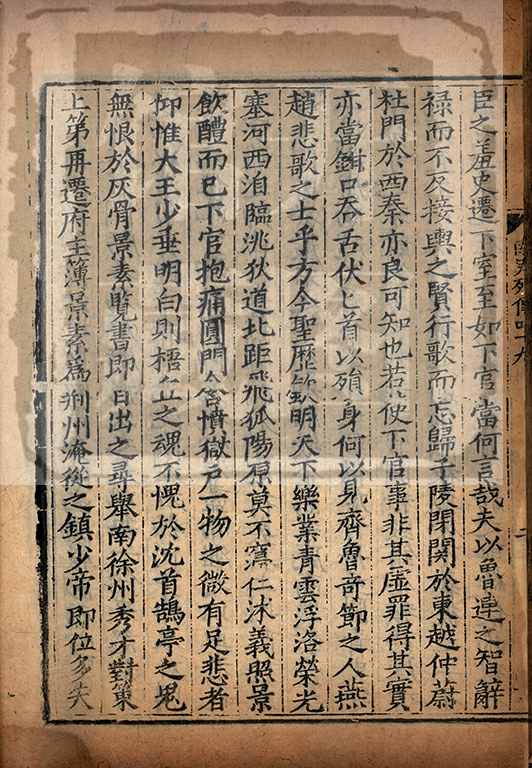 臣之羞史遷下室至如下官當何言哉夫以魯連之智辭
禄而不反接輿之賢行歌而忘歸子陵閉關於東越仲蔚
杜門於西秦亦良可知也若使下官事非其虛罪得其實
亦當鉗口吞舌伏匕首以殞身何以見齊魯奇節之人燕
趙悲歌之士乎方今聖歷欽明天下樂業青雲浮洛榮光
塞河西洎臨洮狄道北距飛狐陽原莫不寖仁沐義照景
飲醴而已下官抱痛圓門含憤獄户一物之微有足悲者
仰惟大王少垂明白則梧丘之魂不愧於沈首鵠亭之鬼
無恨於灰骨景素覽書即日出之尋舉南徐州秀才對策
上第再遷府主簿景素為荆州淹從之鎮少帝即位多失